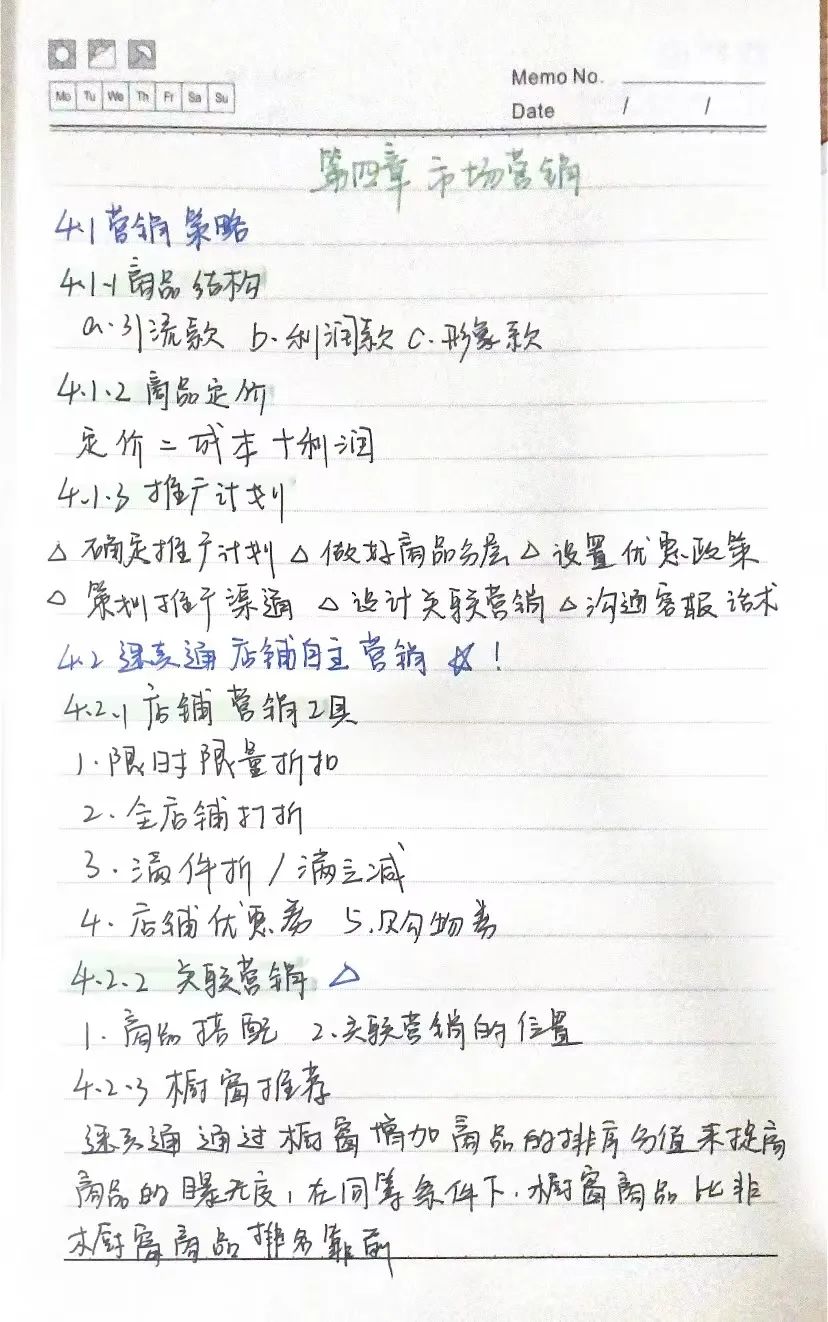 Mo Tu We Th Fr Sa Su
Memo No.
Date / /
第四章 市场营销
4.1 营销策略
4.1.1 商品结构
a.引流款 b.利润款 c.形象款
4.1.2 商品定价
定价=成本+利润
4.1.3 推广计划
△ 确定推广计划 △ 做好商品分层 △ 设置优惠政策
△ 策划推广渠道 △ 设计关联营销 △ 沟通客服话术
4.2 速卖通店铺自主营销 ☆!
4.2.1 店铺营销工具
1.限时限量折扣
2.全店铺打折
3.满件折/满立减
4.店铺优惠券 5.购物券
4.2.2 关联营销 △
1.商品搭配 2.关联营销的位置
4.2.3 橱窗推荐
速卖通通过橱窗增加商品的排序分值来提高
商品的曝光度,在同等条件下,橱窗商品比非
橱窗商品排名靠前